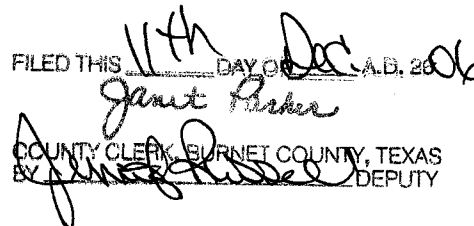 FILED THIS 11th DAY OF Dec. A.D. 2006
Janet Parker
COUNTY CLERK, BURNET COUNTY, TEXAS
BY DEPUTY